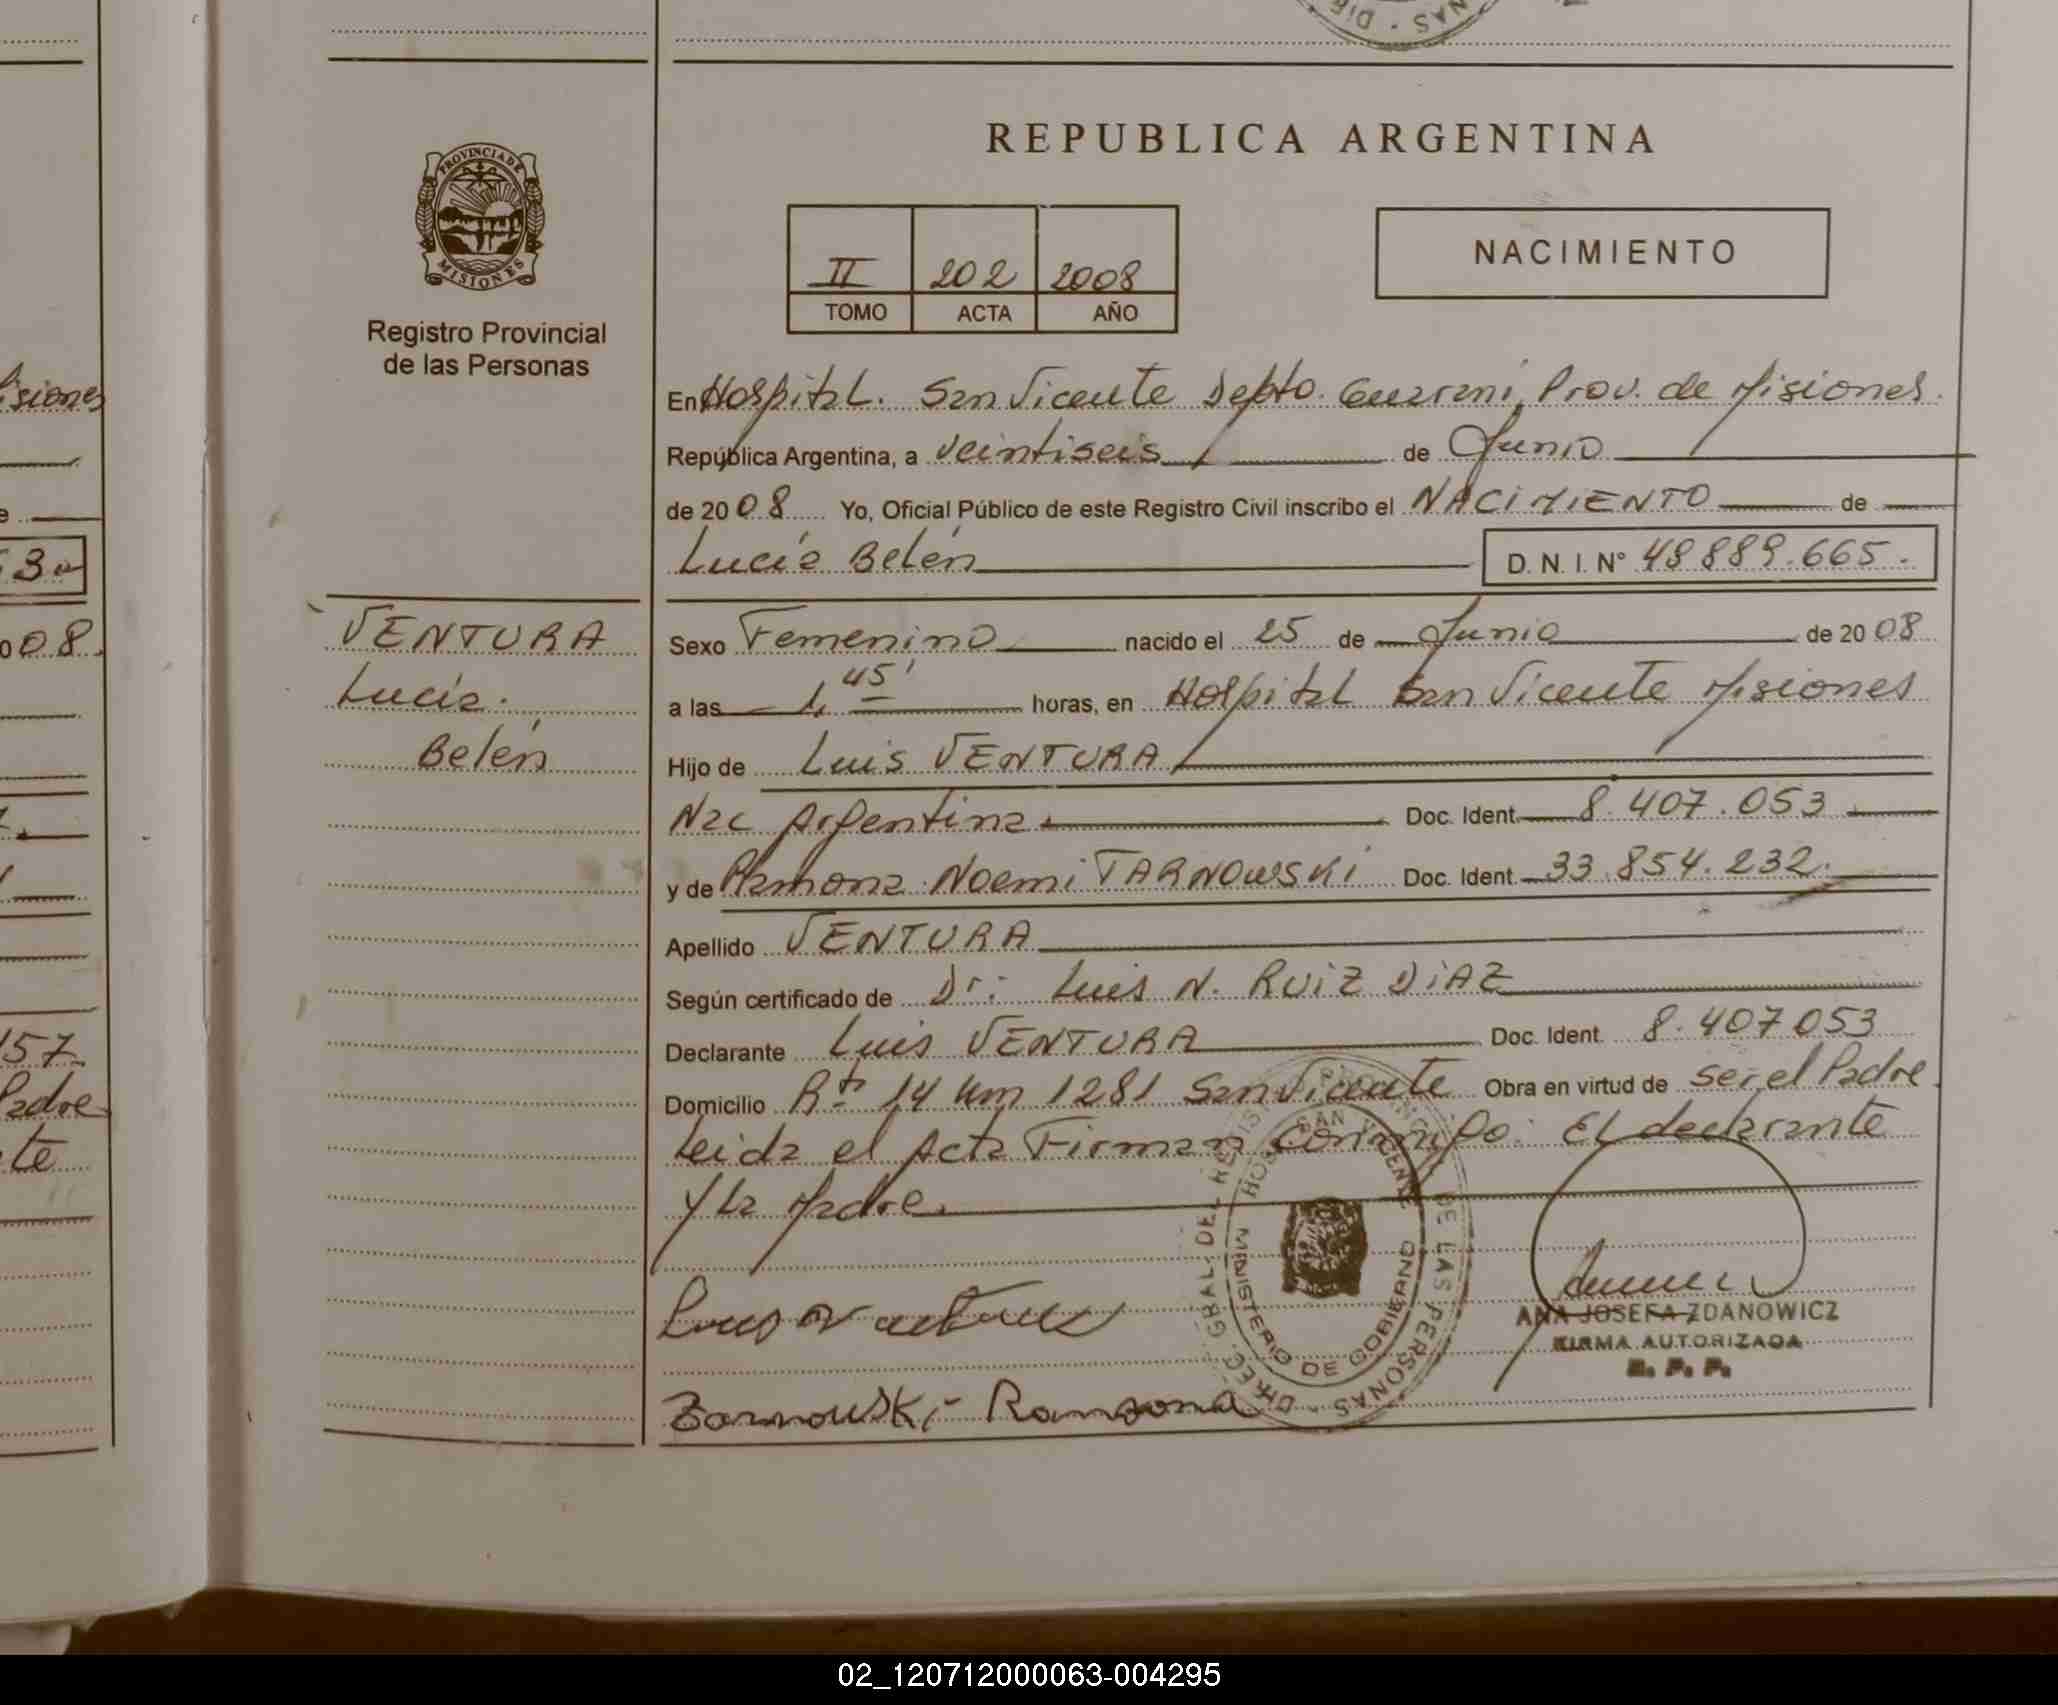 NAS - DIE
REPUBLICA ARGENTINA
PROVINCIA DE
MISIONES
Registro Provincial
de las Personas
II 202 2008
TOMO ACTA AÑO
NACIMIENTO
En Hospital. San Vicente Depto. Guarani, Prov. de Misiones.
República Argentina, a veintiseis de Junio
de 2008 Yo, Oficial Público de este Registro Civil inscribo el NACIMIENTO de
Lucía Belén D. N. I. N° 48889.665.
VENTURA
Lucía.
Belén
Sexo Femenino nacido el 25 de Junio de 2008
a las 1,45' horas, en Hospital San Vicente Misiones
Hijo de Luis VENTURA
Nac Argentina. Doc. Ident. 8.407.053
y de Ramona Noemi TARNOWSKI Doc. Ident. 33.854.232.
Apellido VENTURA
Según certificado de Dr: Luis N. RUIZ DIAZ
Declarante Luis VENTURA Doc. Ident. 8.407053
Domicilio Rta 14 Km 1281 San Vicente Obra en virtud de ser el Padre.
Leida el Acta Firman conmigo: El declarante
y la Madre.
ANA JOSEFA ZDANOWICZ
FIRMA AUTORIZADA
R. P. P.
DIREC. GRAL. DEL REGISTRO PROVINCIAL DE LAS PERSONAS
HOSP. SAN VICENTE
MINISTERIO DE GOBIERNO
isiones
e
63
008.
157.
Padre
te
02_120712000063-004295